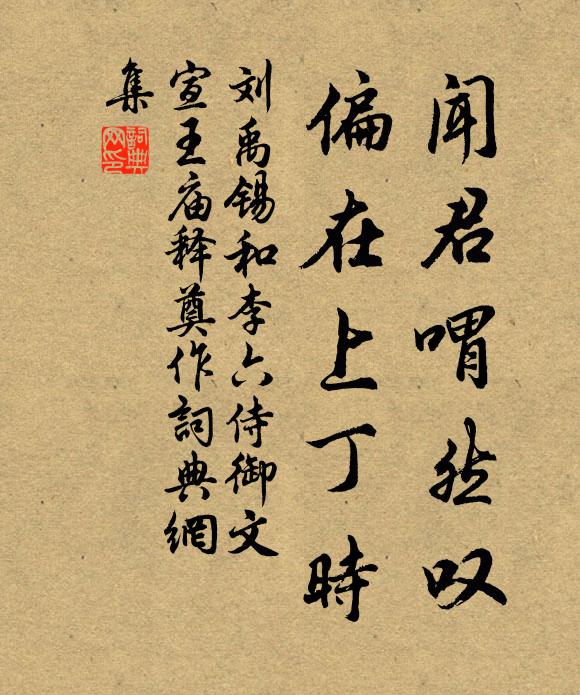 闻君喟然叹
偏在上丁時
刘禹锡和李六侍御文
宣王庙释奠作詞典網
集
詞典网印